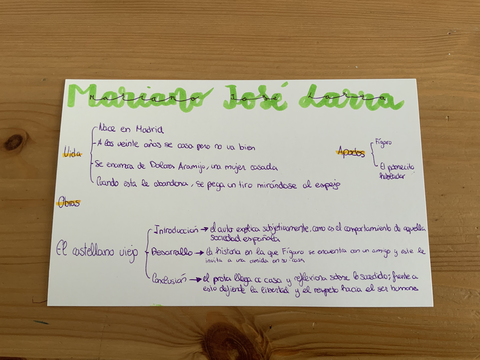 Mariano José Larra
Vida
Nace en Madrid
A los veinte años se casa pero no va bien
Se enamora de Dolores Armijo, una mujer casada
Cuando esta le abandona, se pega un tiro mirándose al espejo
Apodos
Fígaro
El pobrecito hablador
Obras
El castellano viejo
Introducción → el autor explica subjetivamente, como es el comportamiento de aquella
sociedad española
Desarrollo → la historia en la que Fígaro se encuentra con un amigo y este le
invita a una comida en su casa
Conclusión → el prota llega a casa y reflexiona sobre lo sucedido; frente a
esto defiende la libertad y el respeto hacia el ser humano